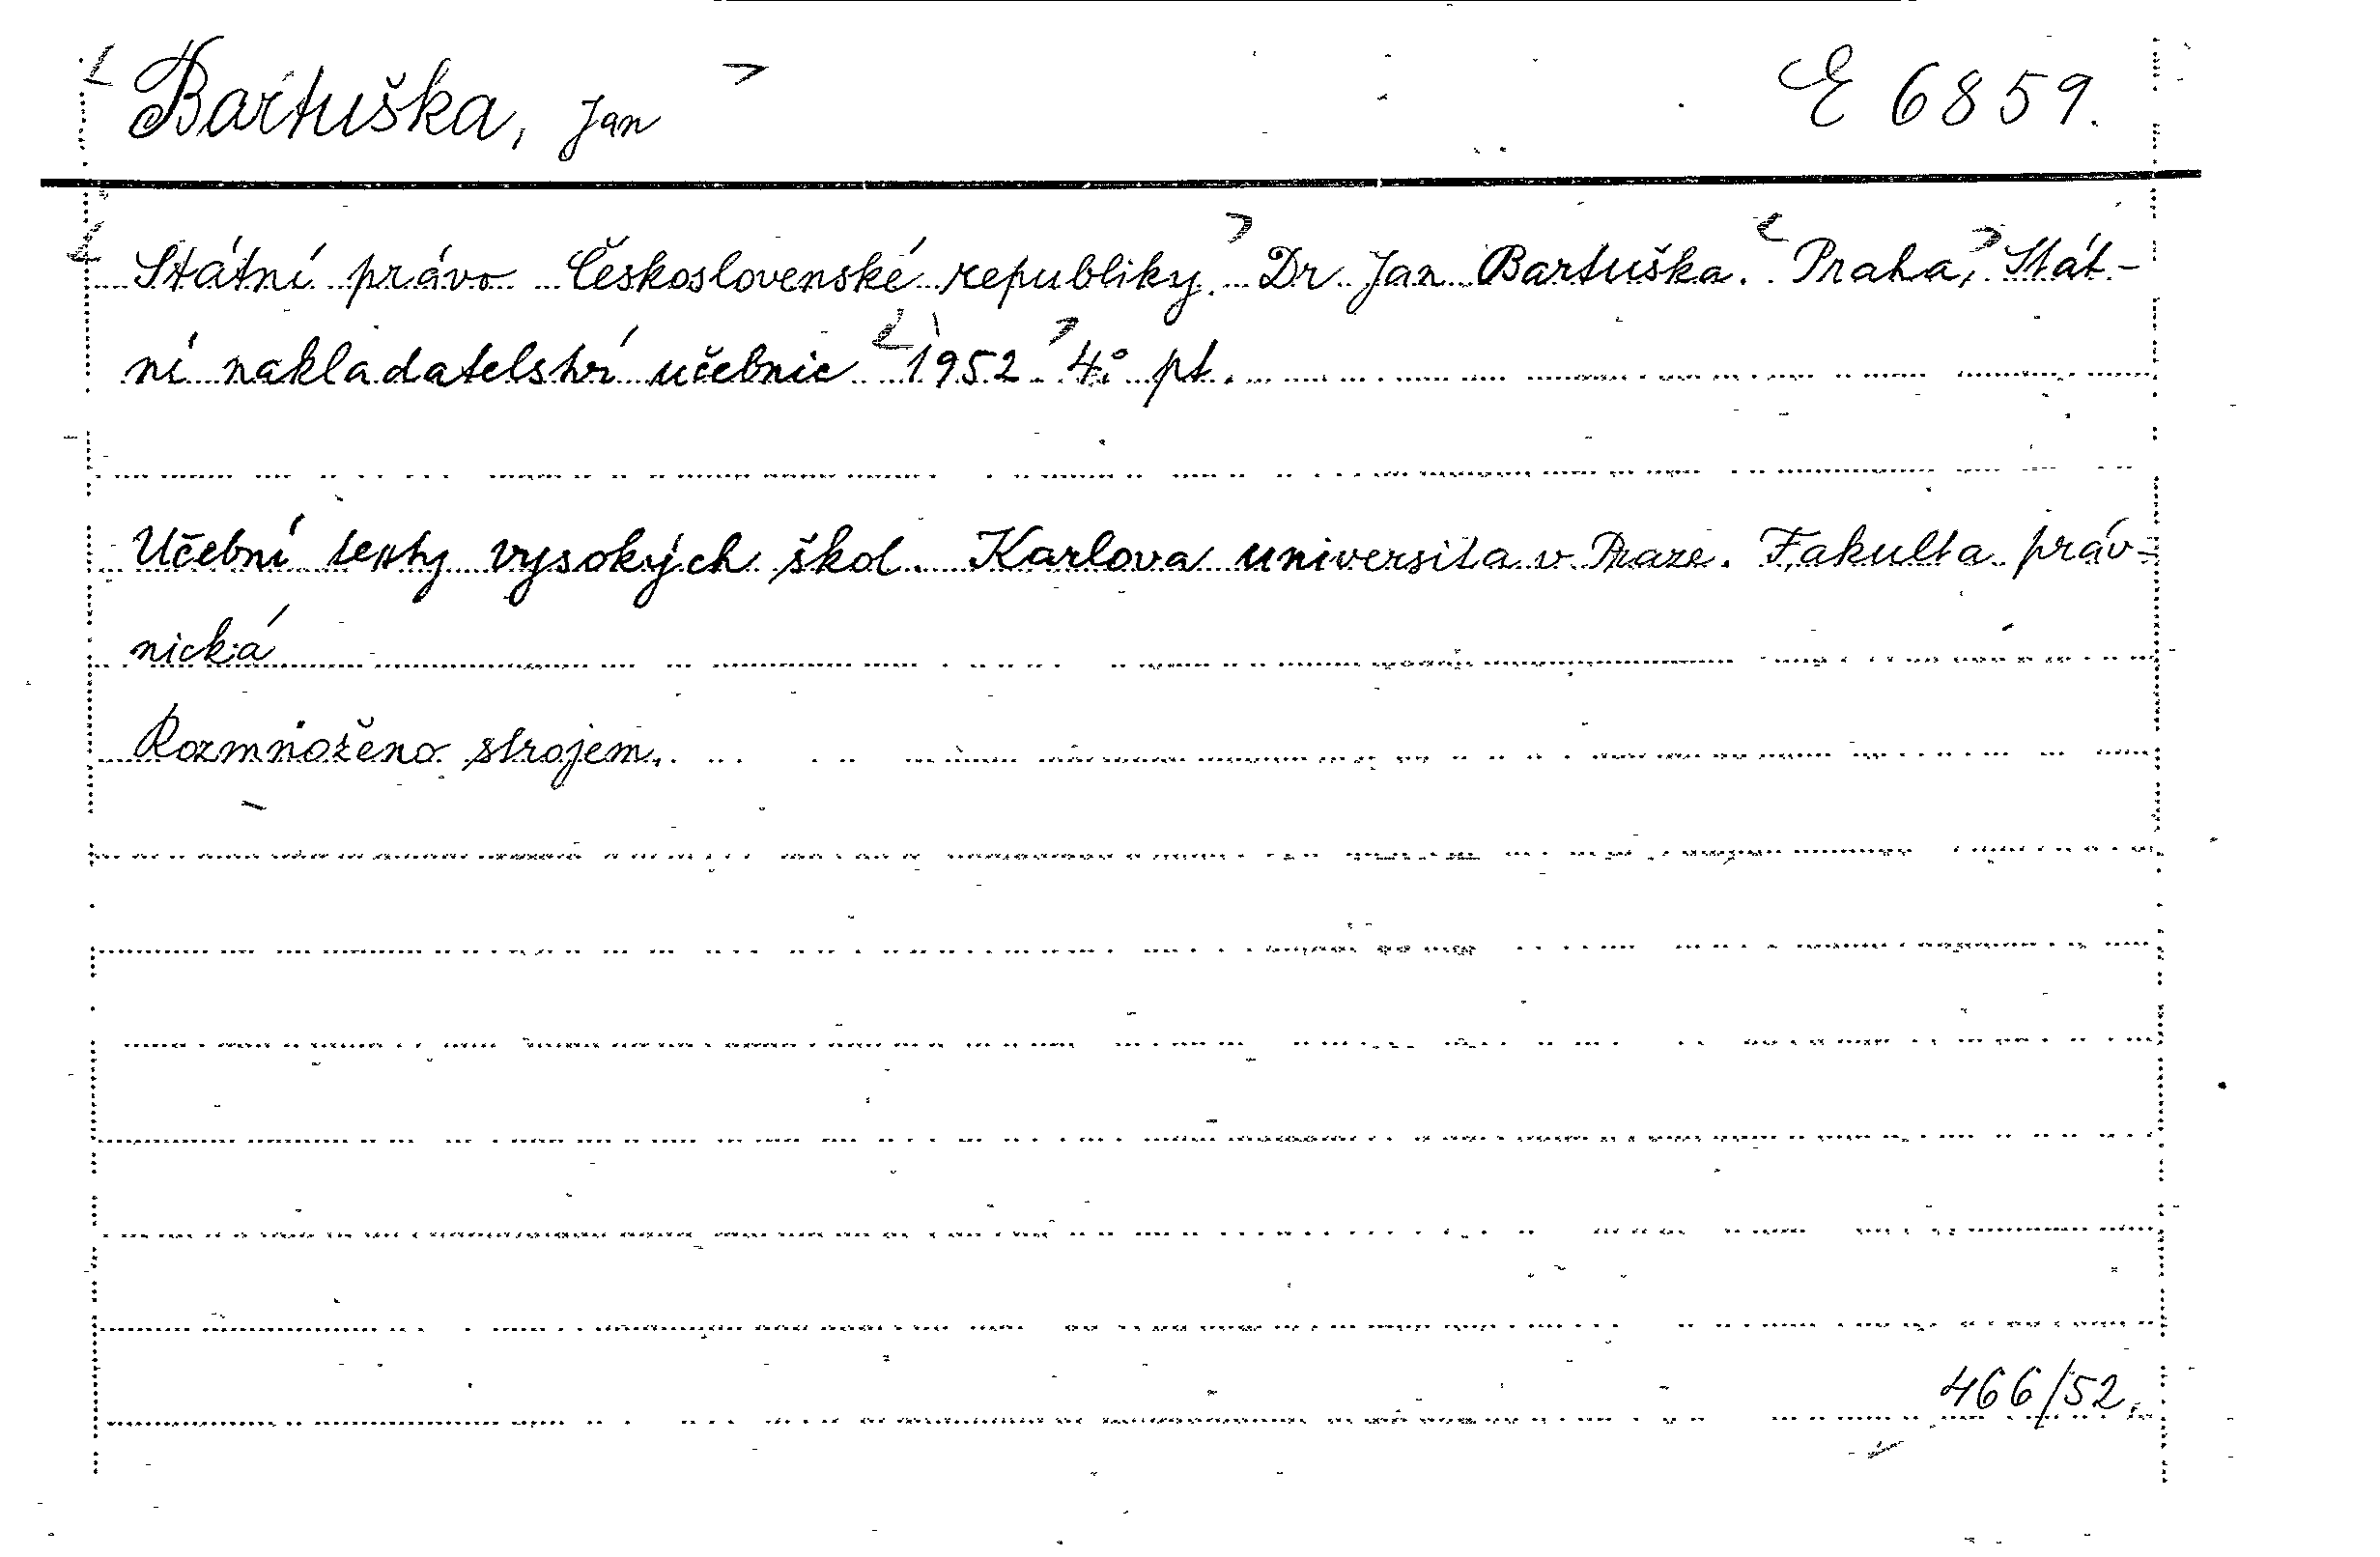 Bartuška, Jan E 6859.
Státní právo Československé republiky. Dr Jan Bartuška. Praha, Stát-
ní nakladatelství učebnic 1952 4° pt.
Učební texty vysokých škol. Karlova universita v Praze. Fakulta práv-
nická
Rozmnoženo strojem.
466/52.